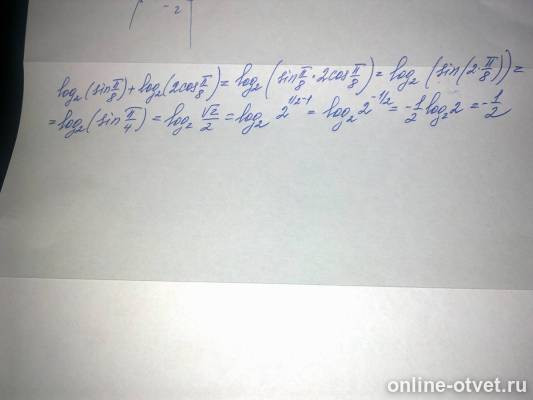 -2
log₂(sin π/8) + log₂(2cos π/8) = log₂(sin π/8 · 2cos π/8) = log₂(sin(2·π/8)) =
= log₂(sin π/4) = log₂ √2/2 = log₂ 2^(1/2-1) = log₂ 2^(-1/2) = -1/2 log₂ 2 = -1/2
online-otvet.ru